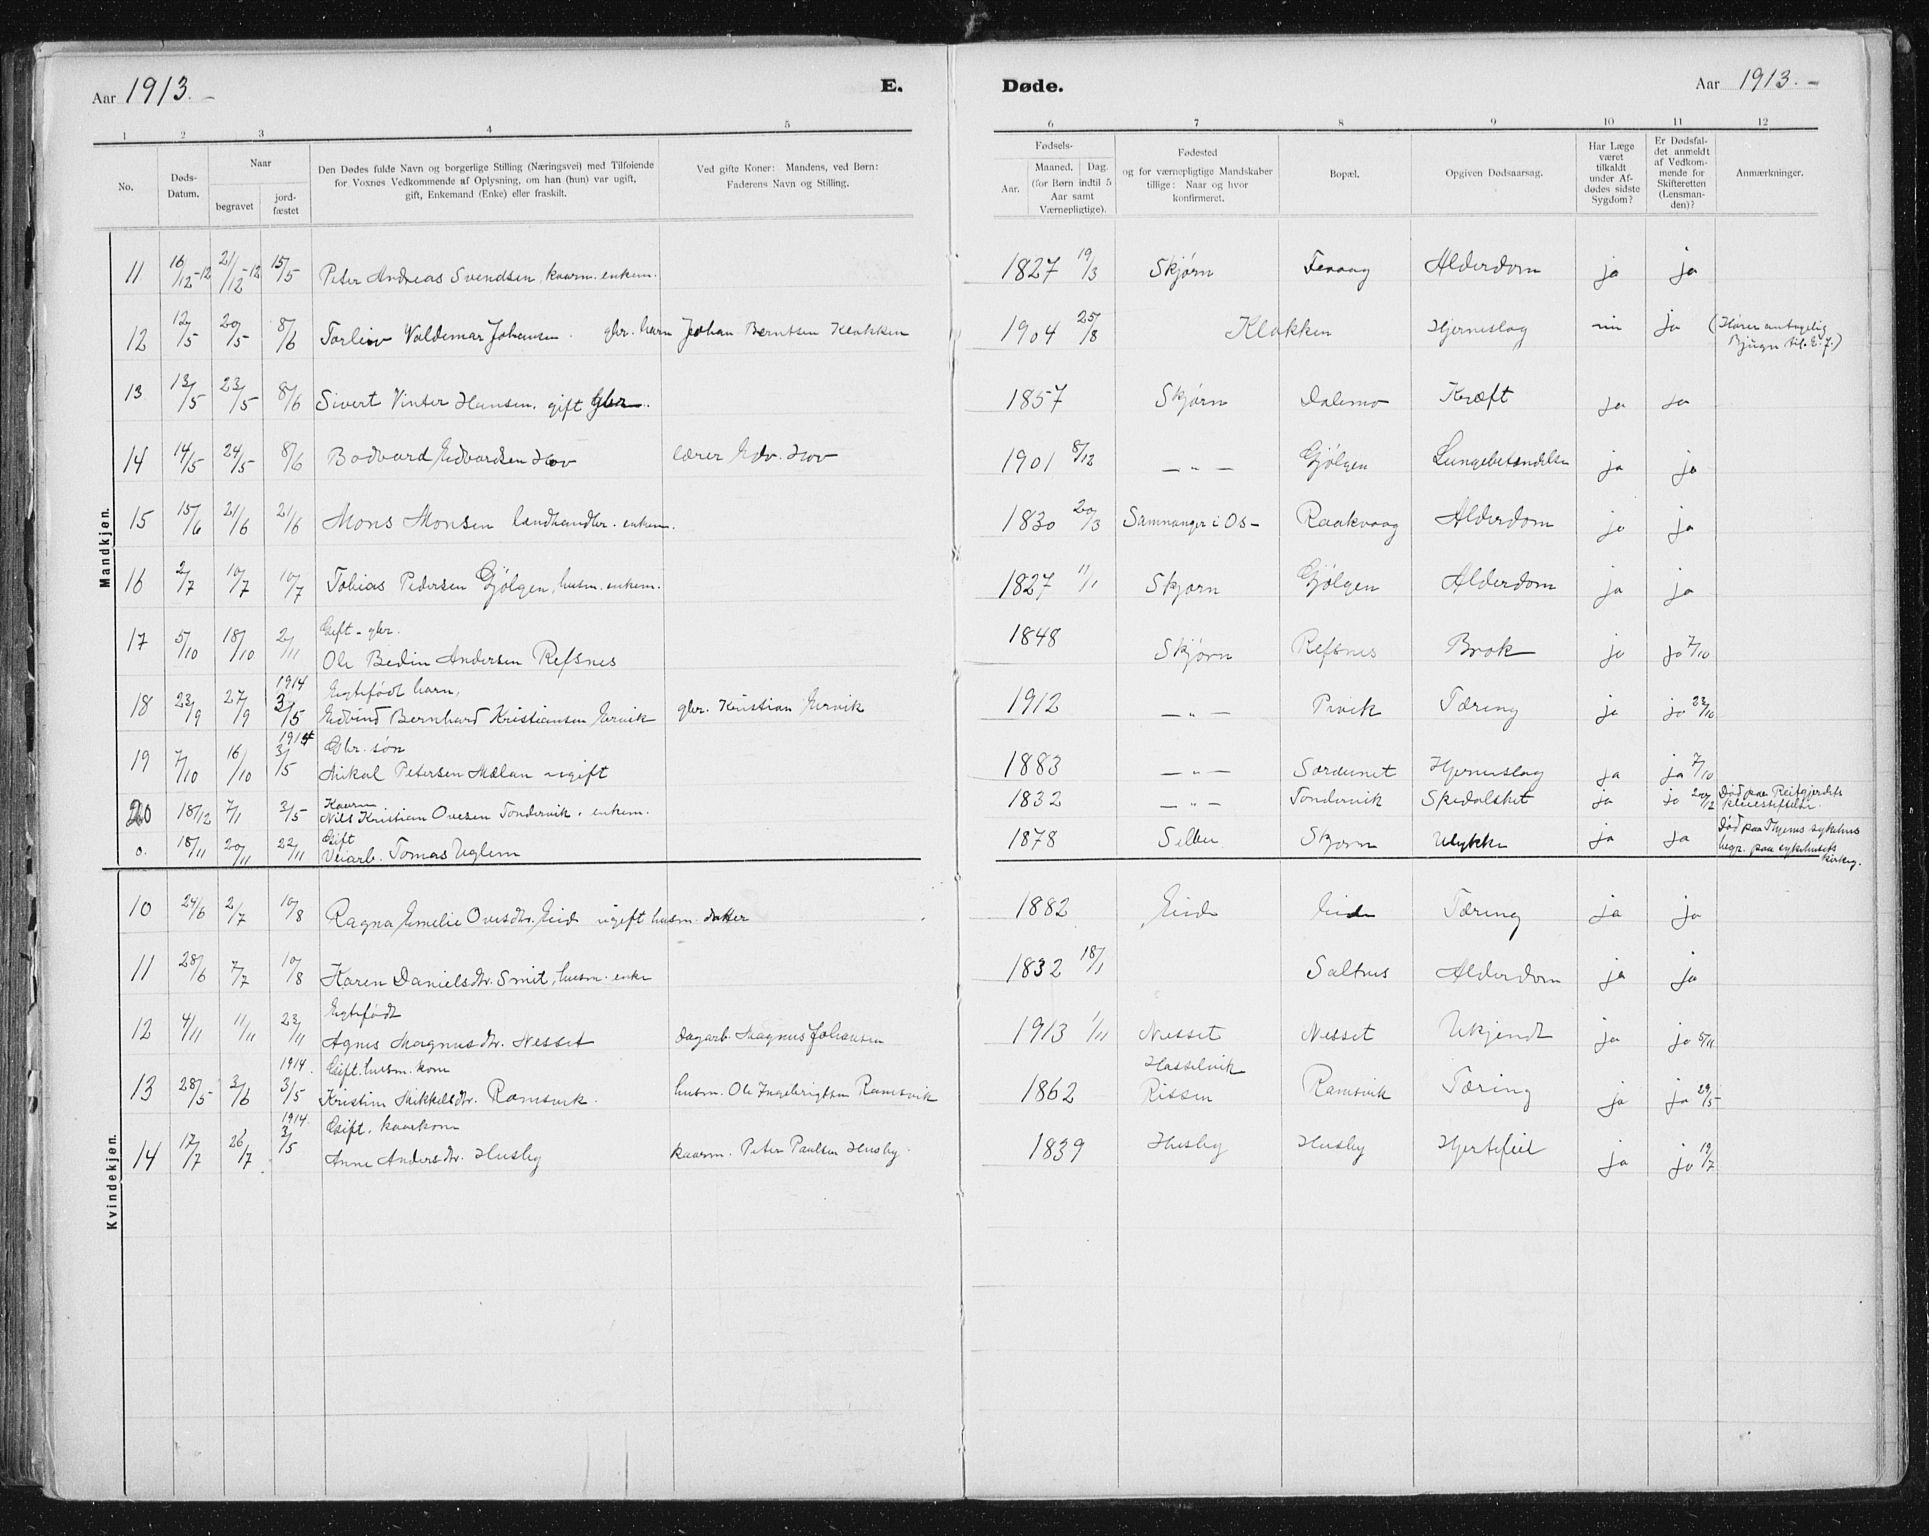 Aar 1913. –
E.
Døde.
Aar 1913. –
1 2 3 4 5 6 7 8 9 10 11 12
No.
Døds-
Datum.
Naar
begravet
jord-
fæstet
Den Dødes fulde Navn og borgerlige Stilling (Næringsvei) med Tilføiende
for Voxnes Vedkommende af Oplysning, om han (hun) var ugift,
gift, Enkemand (Enke) eller fraskilt.
Ved gifte Koner: Mandens, ved Børn:
Faderens Navn og Stilling.
Fødsels-
Aar.
Maaned. Dag.
(for Børn indtil 5
Aar samt
Værnepligtige).
Fødested
og for værnepligtige Mandskaber
tillige: Naar og hvor
konfirmeret.
Bopæl.
Opgiven Dødsaarsag.
Har Læge
været
tilkaldt
under Af-
dødes sidste
Sygdom?
Er Dødsfal-
det anmeldt
af Vedkom-
mende for
Skifteretten
(Lensman-
den)?
Anmærkninger.
Mandkjøn.
11 16/12-12 21/12-12 15/5 Peter Andreas Svendsen, kaarm. enkem. 1827 19/3 Skjørn Fevaag Alderdom ja ja
12 12/5 20/5 8/6 Torleiv Valdemar Johansen. gbr. barn Johan Berntsen Klakken 1904 25/8 Klakken Hjerneslag ja (Hører
Bjugn til. E.J.)
13 13/5 23/5 8/6 Sivert Vinter Hansen, gift gbr. 1857 Skjørn Dalemo Kræft ja ja
14 14/5 24/5 8/6 Bodvard Edvardsen Hov lærer Edv. Hov 1901 8/12 – " – Gjølgen Lungebetændelse ja ja
15 15/6 21/6 21/6 Mons Monsen landhandler. enkem. 1830 20/3 Samnanger i Os – Raakvaag Alderdom ja ja
16 2/7 10/7 10/7 Tobias Pedersen Gjølgen, husm. enkem. 1827 11/1 Skjørn Gjølgen Alderdom ja ja
17 5/10 18/10 2/11 Gift – gbr.
Ole Bedin Andersen Refsnes 1848 Skjørn Refsnes Brok ja ja 7/10
18 23/9 27/9 1914 3/5 Egtefødt barn,
Edvind Bernhard Kristiansen Ervik gbr. Kristian Ervik 1912 – " – Tæring ja ja 23/10
19 7/10 16/10 1914 3/5 Gbr. søn
Mikal Petersen Mælan ugift 1883 – " – Hjerneslag ja ja 7/10
20 18/12 7/1 3/5 Kaarm
Nils Kristian Ovesen Tondervik. enkem. 1832 – " – Tondervik Spedalsket ja ja 20/12 Død paa Reitgjerdets
pleiestiftelse
o. 18/11 20/11 22/11 Gift
Veiarb. Tomas Uglem 1878 Selbu Skjørn Ulykke ja ja Død paa sykehus
begr. paa sykehusets
kirkeg.
Kvindekjøn.
10 24/6 2/7 10/8 Ragna Emelie Ovesdtr. Eid ugift husm. datter 1882 Eid Eid Tæring ja ja
11 28/6 7/7 10/8 Karen Danielsdtr. Smit, husm. enke 1832 18/1 Saltnes Alderdom ja ja
12 4/11 11/11 23/11 Egtefødt
Agnes Magnusdtr. Nesset dagarb. Magnus Johansen 1913 1/11 Nesset Nesset Ukjendt ja ja 5/11
13 28/5 3/6 1914. 3/5 Gift. husm. kone
Kristine Mikkelsdtr. Ramsvik. husm. Ole Ingebrigtsen Ramsvik 1862 Hasselvik
Rissen Ramsvik Tæring ja ja 29/5
14 17/7 26/7 1914. 3/5 Gift. kaarkone
Anne Andersdtr. Husby kaarm. Peter Paulsen Husby 1839 Husby Husby Hjertefeil ja ja 19/7